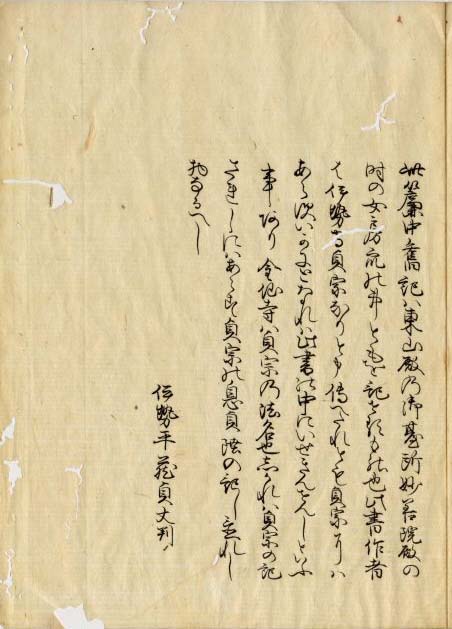 此簾中舊記ハ東山殿乃御臺所妙善院殿の
時の女房衆の事ともを記せるもの也此書作者
は伊勢守貞宗なりとも傳へたれとも貞宗にハ
あらすいかにとなれハ此書の中にいせきんせんしといふ
事あり金仙寺ハ貞宗乃法名也しかれハ貞宗の記
されしにハあらす貞宗の息貞陸の記し置れし
物なるへし
伊勢平蔵貞丈判